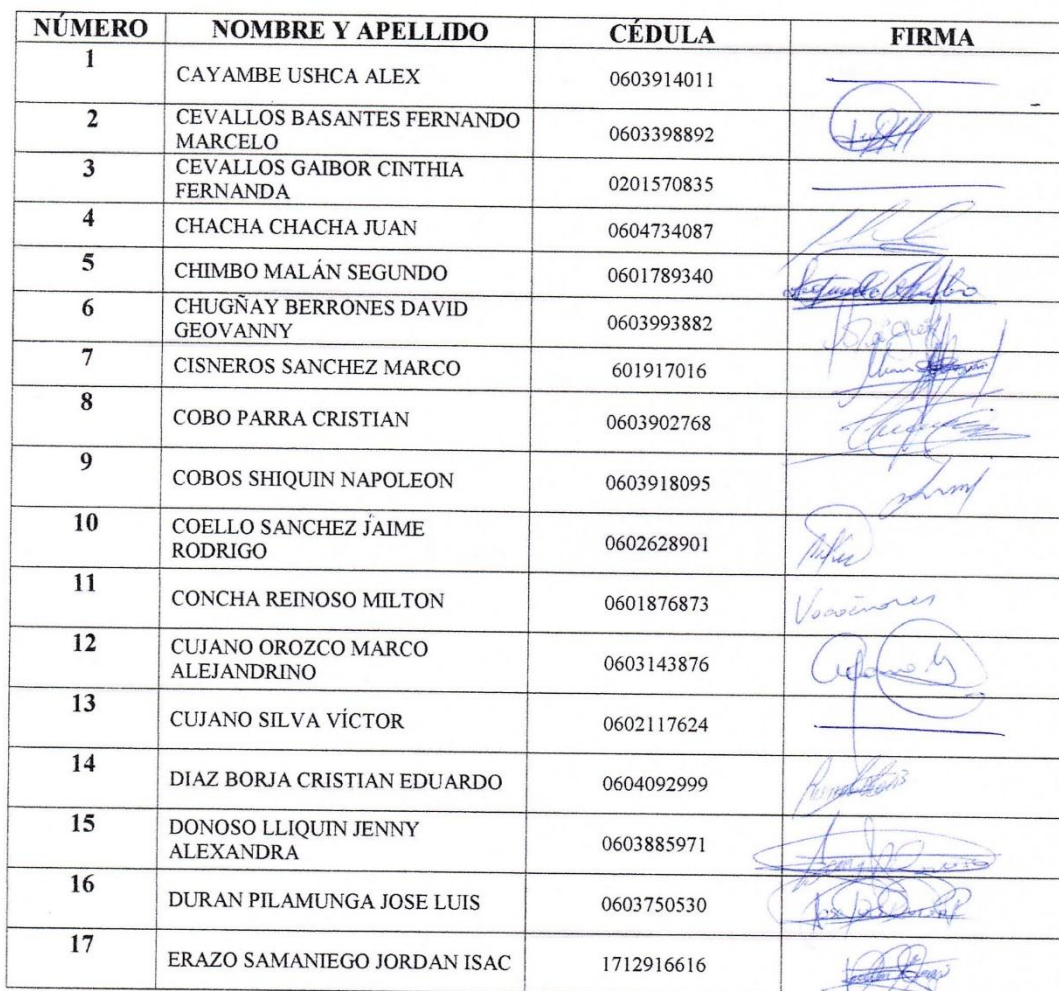 NÚMERO NOMBRE Y APELLIDO CÉDULA FIRMA
1 CAYAMBE USHCA ALEX 0603914011
2 CEVALLOS BASANTES FERNANDO
MARCELO 0603398892
3 CEVALLOS GAIBOR CINTHIA
FERNANDA 0201570835
4 CHACHA CHACHA JUAN 0604734087
5 CHIMBO MALÁN SEGUNDO 0601789340
6 CHUGÑAY BERRONES DAVID
GEOVANNY 0603993882
7 CISNEROS SANCHEZ MARCO 601917016
8 COBO PARRA CRISTIAN 0603902768
9 COBOS SHIQUIN NAPOLEON 0603918095
10 COELLO SANCHEZ JAIME
RODRIGO 0602628901
11 CONCHA REINOSO MILTON 0601876873
12 CUJANO OROZCO MARCO
ALEJANDRINO 0603143876
13 CUJANO SILVA VÍCTOR 0602117624
14 DIAZ BORJA CRISTIAN EDUARDO 0604092999
15 DONOSO LLIQUIN JENNY
ALEXANDRA 0603885971
16 DURAN PILAMUNGA JOSE LUIS 0603750530
17 ERAZO SAMANIEGO JORDAN ISAC 1712916616